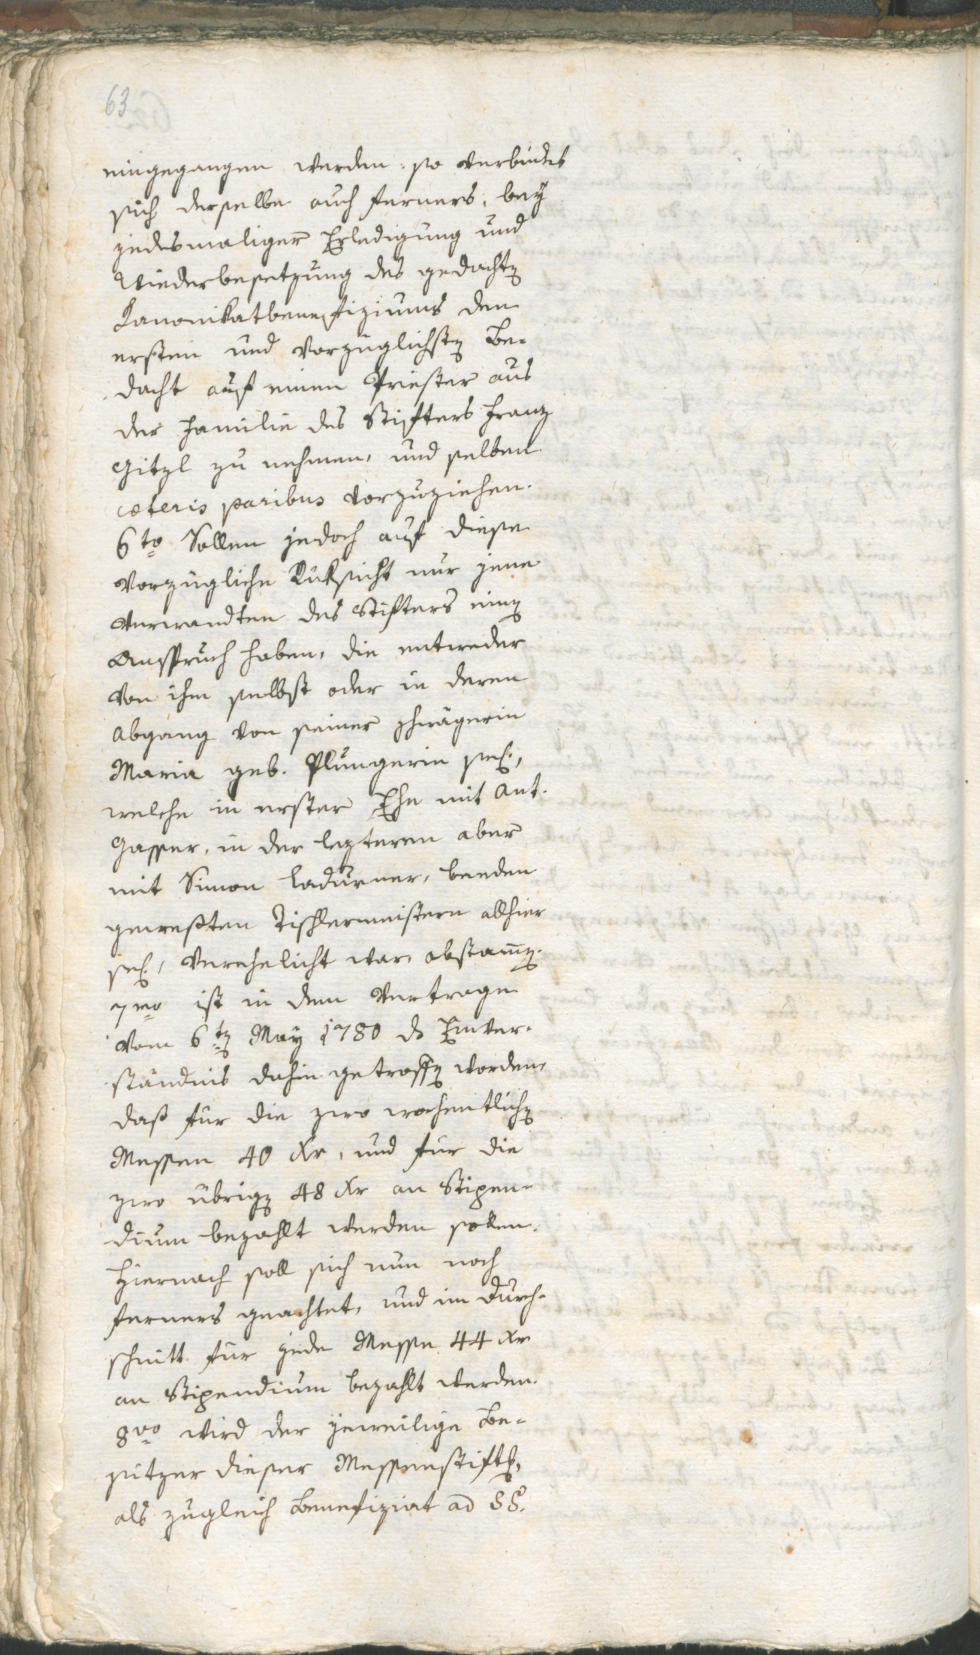 63
eingegangen werden: so verbindet
sich derselbe auch ferners, bey
jedesmaliger Erledigung und
Wiederbesetzung des gedachtẽ
Kanonikatbenefiziums den
ersten und vorzüglichstẽ Be-
dacht auf einen Priester aus
der Familie des Stifters Franz
Gitzl zu nehmen, und selben
cæteris paribus vorzuziehen.
6to Sollen jedoch auf diese
vorzügliche Rüksicht nur jene
Verwandten des Stifters einẽ
Anspruch haben, die entweder
von ihm selbst oder in deren
Abgang von seiner Schwägerin
Maria geb. Plungerin sel.,
welche in erster Ehe mit Ant.
Gasser, in der lezteren aber
mit Simon Ladurner, beeden
gewesten Tischlermeistern allhier
sel., verehelicht war, abstam̃ẽ.
7mo ist in dem Vertrage
vom 6tẽ May 1780 ds Einver-
ständnis dahin getroffẽ worden,
daß für die zwo wochentlichẽ
Messen 40 Xr, und für die
zwo übrigẽ 48 Xr an Stipen-
dium bezahlt werden sollen.
Hiernach soll sich nun noch
ferners geachtet, und im Durch-
schnitt für jede Messe 44 Xr
an Stipendium bezahlt werden.
8vo wird der jeweilige Be-
sitzer dieser Messenstift,
als zugleich Benefiziat ad SS.